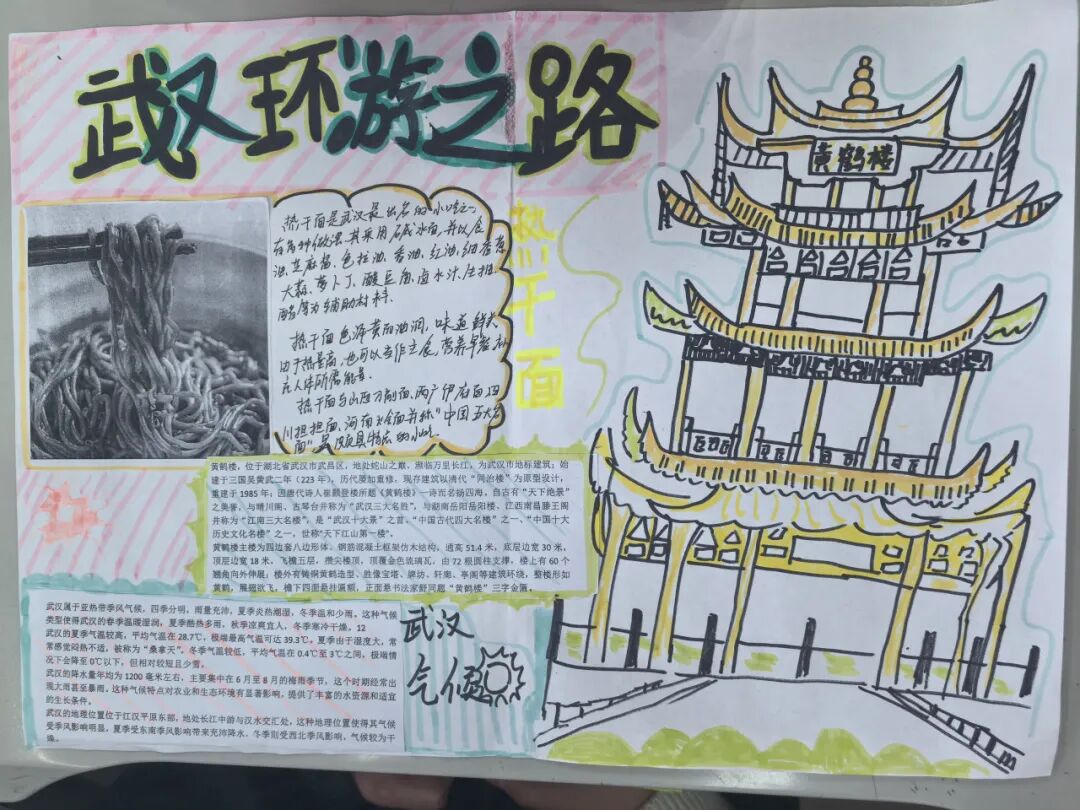 武汉环游之路
热干面是武汉最出名的小吃之一
有多种做法,其采用碱水面,并以食
油、芝麻酱、色拉油、香油、红油、细香葱
大蒜、萝卜丁、酸豆角、卤水汁、生抽
醋等为辅助材料.
热干面色泽黄而油润,味道鲜美
由于热量高,也可以当作主食,营养早餐补
充人体所需能量.
热干面与山西刀削面、两广伊府面、四
川担担面、河南烩面并称“中国五大名
面”是颇具特色的小吃.
热干面
黄鹤楼
黄鹤楼,位于湖北省武汉市武昌区,地处蛇山之巅,濒临万里长江,为武汉市地标建筑;始
建于三国吴黄武二年(223年),历代屡加重修,现存建筑以清代“同治楼”为原型设计,
重建于1985年;因唐代诗人崔颢登楼所题《黄鹤楼》一诗而名扬四海,自古有“天下绝景”
之美誉,与晴川阁、古琴台并称为“武汉三大名胜”,与湖南岳阳岳阳楼、江西南昌滕王阁
并称为“江南三大名楼”,是“武汉十大景”之首、“中国古代四大名楼”之一、“中国十大
历史文化名楼”之一,世称“天下江山第一楼”。
黄鹤楼主楼为四边套八边形体、钢筋混凝土框架仿木结构,通高51.4米,底层边宽30米,
顶层边宽18米,飞檐五层,攒尖楼顶,顶覆金色琉璃瓦,由72根圆柱支撑,楼上有60个
翘角向外伸展;楼外有铸铜黄鹤造型、胜像宝塔、牌坊、轩廊、亭阁等建筑环绕,整楼形如
黄鹤,展翅欲飞,檐下四面悬挂匾额,正面悬书法家舒同题“黄鹤楼”三字金匾。
武汉属于亚热带季风气候,四季分明,雨量充沛,夏季炎热潮湿,冬季温和少雨。这种气候
类型使得武汉的春季温暖湿润,夏季酷热多雨,秋季凉爽宜人,冬季寒冷干燥。12
武汉的夏季气温较高,平均气温在28.7℃,极端最高气温可达39.3℃。夏季由于湿度大,常
常感觉闷热不适,被称为“桑拿天”。冬季气温较低,平均气温在0.4℃至3℃之间,极端情
况下会降至0℃以下,但相对较短且少雪。
武汉的降水量年均为1200毫米左右,主要集中在6月至8月的梅雨季节,这个时期经常出
现大雨甚至暴雨。这种气候特点对农业和生态环境有显著影响,提供了丰富的水资源和适宜
的生长条件。
武汉的地理位置位于江汉平原东部,地处长江中游与汉水交汇处,这种地理位置使得其气候
受季风影响明显,夏季受东南季风影响带来充沛降水,冬季则受西北季风影响,气候较为干
燥。
武汉
气候